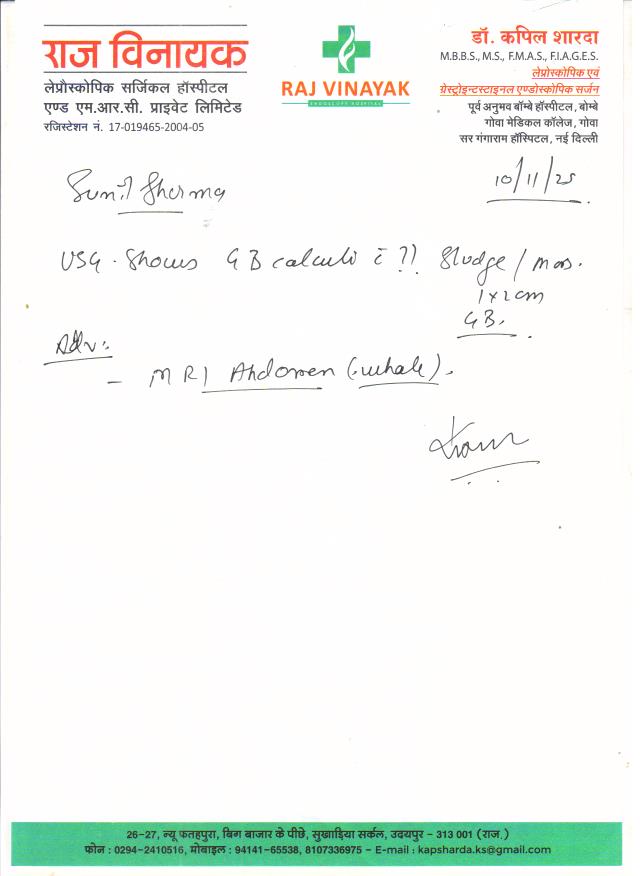 राज विनायक
लेप्रौस्कोपिक सर्जिकल हॉस्पीटल
एण्ड एम.आर.सी. प्राइवेट लिमिटेड
रजिस्टेशन नं. 17-019465-2004-05
RAJ VINAYAK
ENDOSCOPY HOSPITAL
डॉ. कपिल शारदा
M.B.B.S., M.S., F.M.A.S., F.I.A.G.E.S.
लेप्रोस्कोपिक एवं
ग्रेस्ट्रोइन्टस्टाइनल एण्डोस्कोपिक सर्जन
पूर्व अनुभव बॉम्बे हॉस्पीटल, बोम्बे
गोवा मेडिकल कॉलेज, गोवा
सर गंगाराम हॉस्पिटल, नई दिल्ली
10/11/25
Sunil Sharma
USG. Shows GB calculi c̄ ?? Sludge / mass.
1x2cm
GB.
Adv:
- MRI Abdomen (whole).
26-27, न्यू फतहपुरा, बिग बाजार के पीछे, सुखाड़िया सर्कल, उदयपुर - 313 001 (राज.)
फोन : 0294-2410516, मोबाइल : 94141-65538, 8107336975 - E-mail : kapsharda.ks@gmail.com